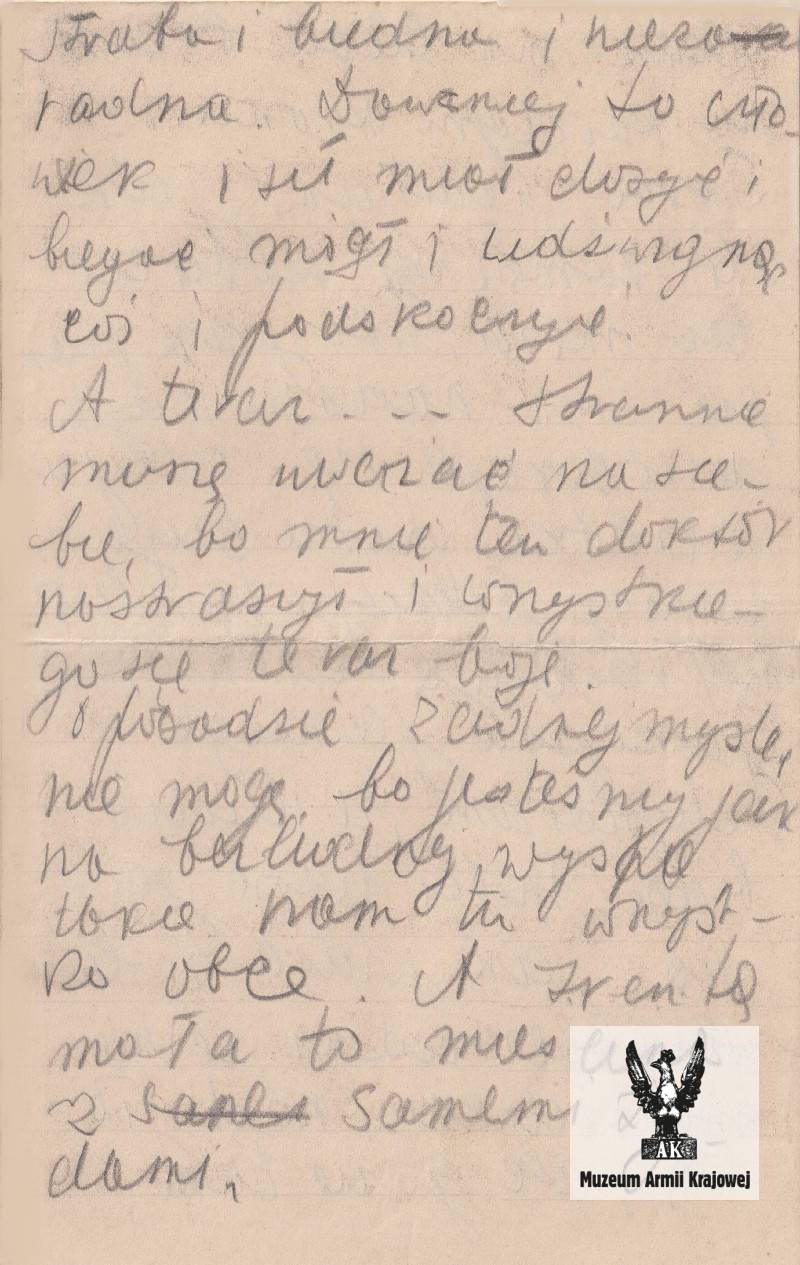 słaba i biedna i nieza-
radna. Dawniej to czło-
wiek i sił miał dosyć i
biegać mógł i udźwigną
coś i podskoczyć.
A teraz . . . strasznie
muszę uważać na sie-
bie, bo mnie ten doktór
nastraszył i wszystkie-
go się teraz boję.
O posadzie żadnej myśleć
nie mogę, bo jesteśmy jak
na bezludnej wyspie
takie nam tu wszyst-
ko obce. A zresztą
mała to
z samemi
dami.
AK
Muzeum Armii Krajowej